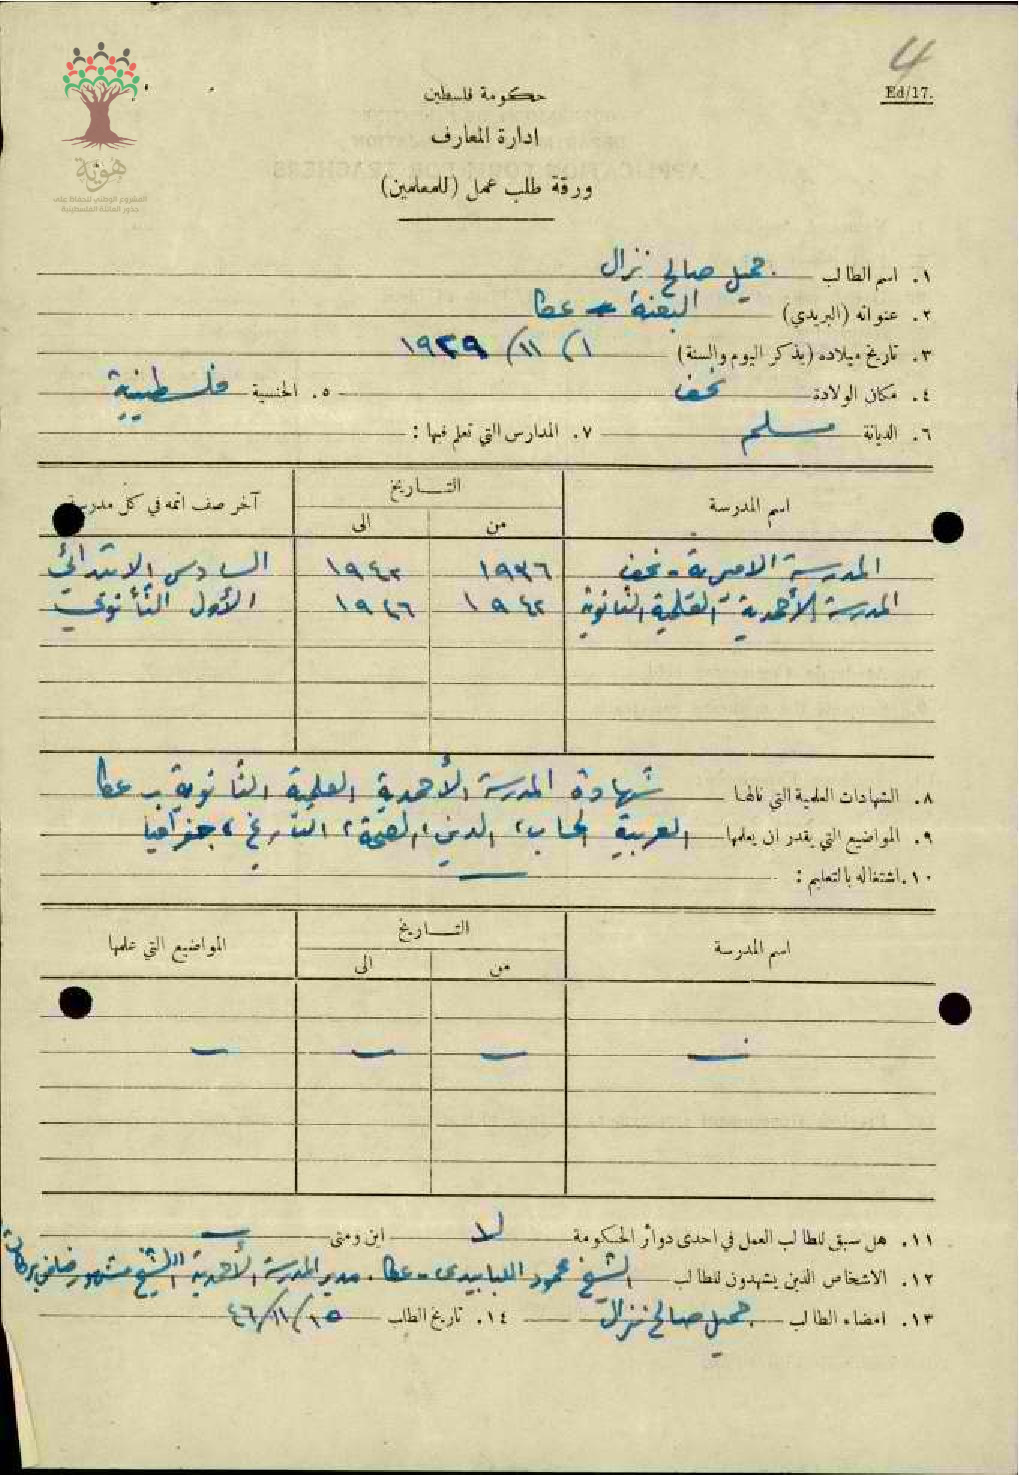 4
Ed/17.
هوية
المشروع الوطني للحفاظ على
جذور العائلة الفلسطينية
حكومة فلسطين
ادارة المعارف
ورقة طلب عمل (للمعلمين)
١. اسم الطالب جميل صالح نزال
٢. عنوانه (البريدي) البعنة - عكا
٣. تاريخ ميلاده (بذكر اليوم والسنة) ١ / ١١ / ١٩٢٩
٤. مكان الولادة نحف ٥. الجنسية فلسطينية
٦. الديانة مسلم ٧. المدارس التي تعلم فيها :
اسم المدرسة التاريخ آخر صف اتمه في كل مدرسة
من الى
المدرسة الاميرية - نحف ١٩٣٦ ١٩٤٢ السادس الابتدائي
المدرسة الأحمدية العلمية الثانوية ١٩٤٢ ١٩٤٦ الأول الثانوي
٨. الشهادات العلمية التي نالها شهادة المدرسة الأحمدية العلمية الثانوية بـ عكا
٩. المواضيع التي يقدر ان يعلمها العربية، الحساب، الدين، الصحة، التاريخ، جغرافيا
١٠. اشتغاله بالتعليم : —
اسم المدرسة التاريخ المواضيع التي علمها
من الى
— — — —
١١. هل سبق للطالب العمل في احدى دوائر الحكومة لا اين ومتى —
١٢. الاشخاص الذين يشهدون للطالب الشيخ محمود اللبابيدي - عكا. مدير المدرسة الأحمدية، الشيخ مشهور ضامن
١٣. امضاء الطالب جميل صالح نزال ١٤. تاريخ الطلب ١٥/١١/٤٦